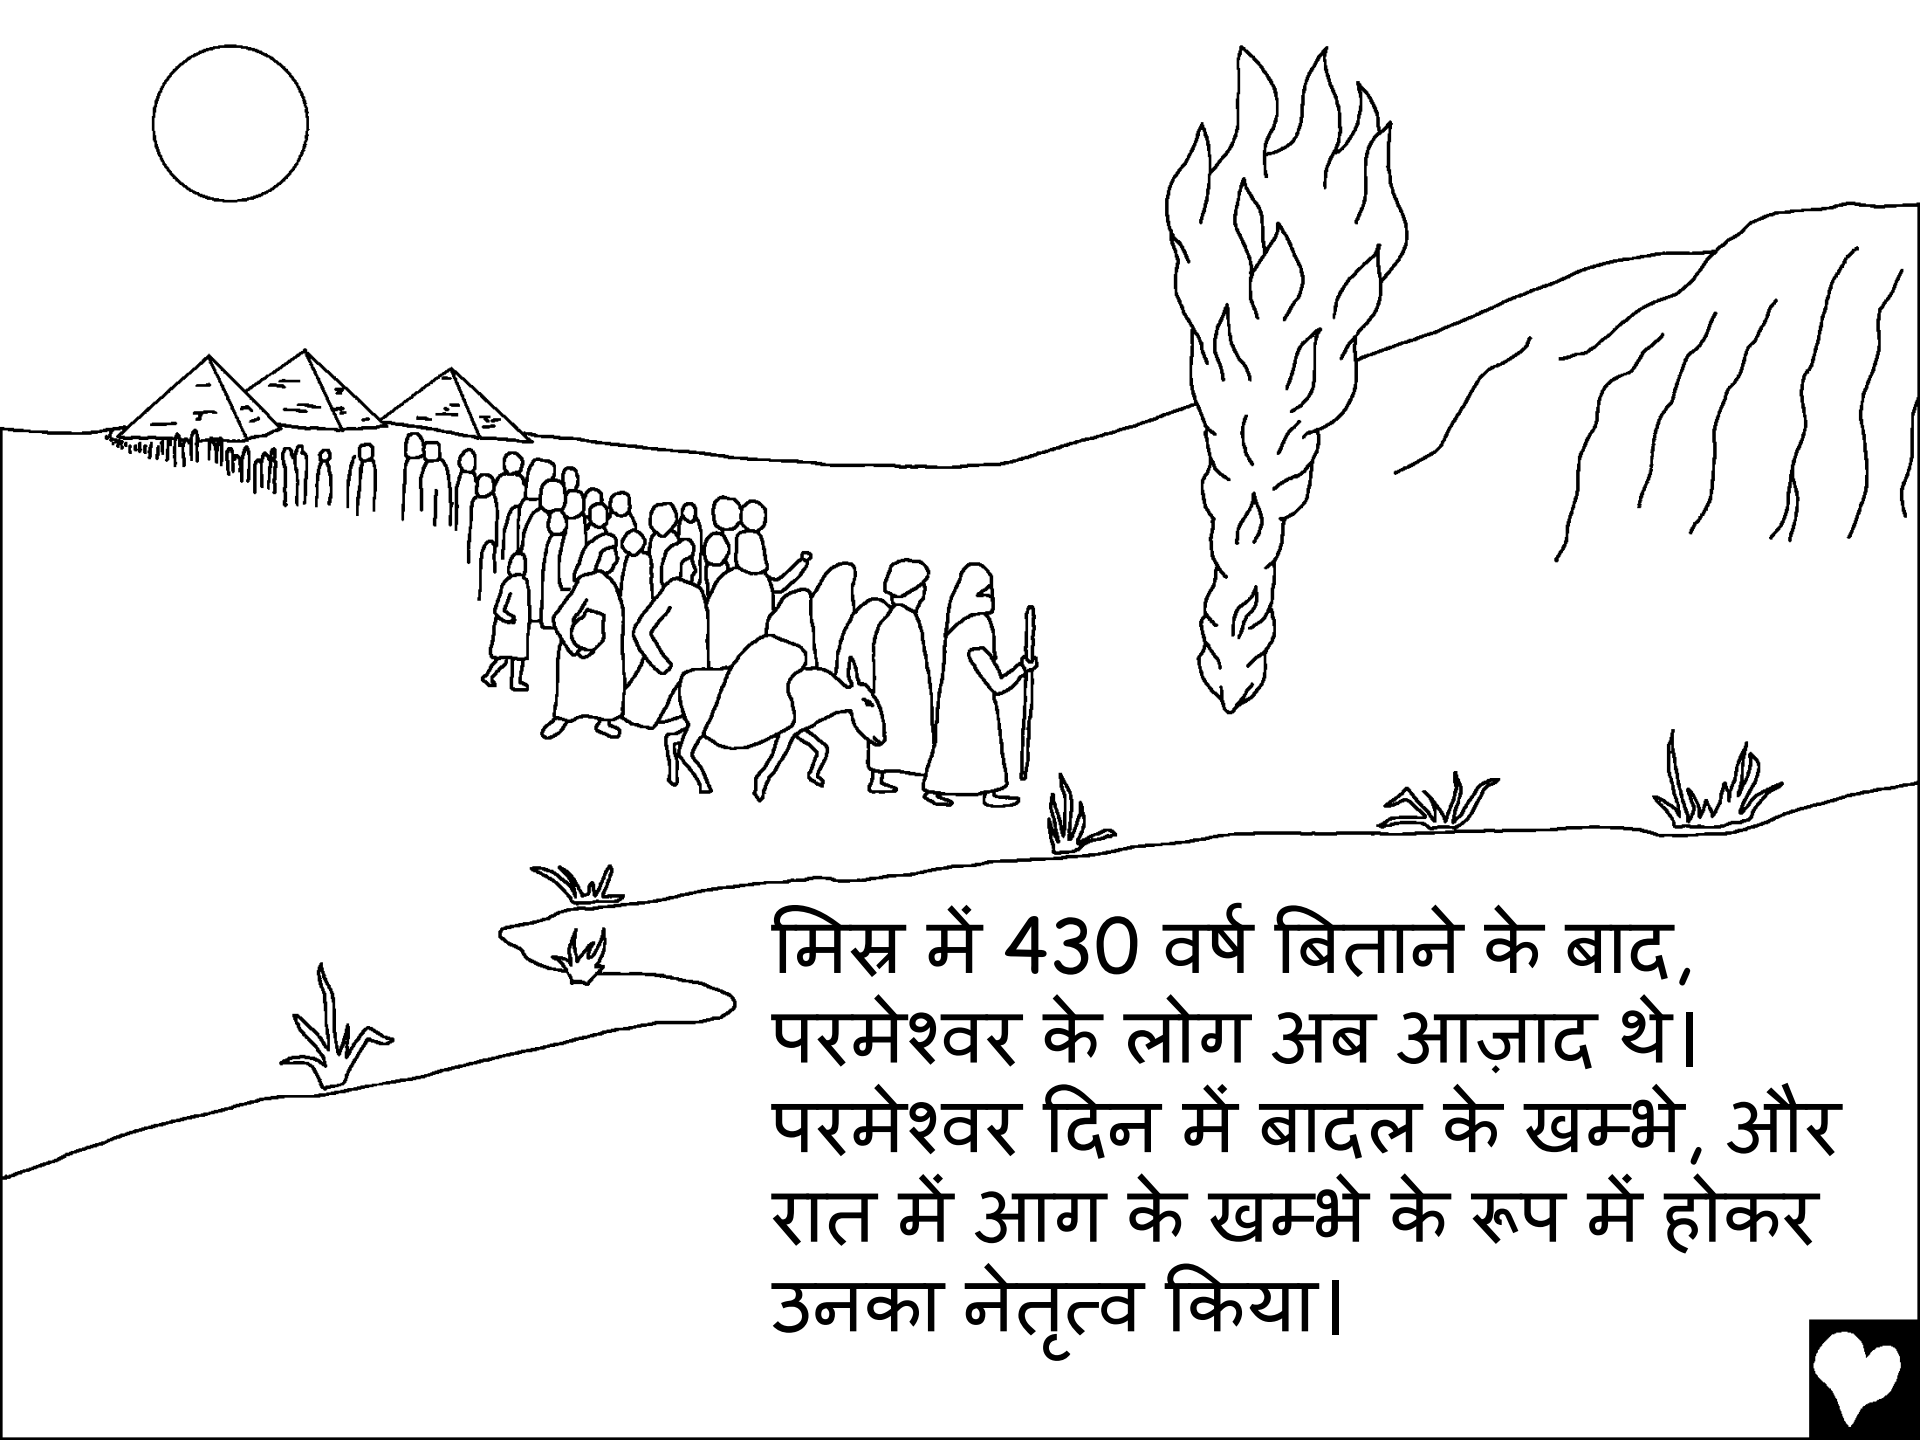 मिस्र में 430 वर्ष बिताने के बाद,
परमेश्वर के लोग अब आज़ाद थे।
परमेश्वर दिन में बादल के खम्भे, और
रात में आग के खम्भे के रूप में होकर
उनका नेतृत्व किया।